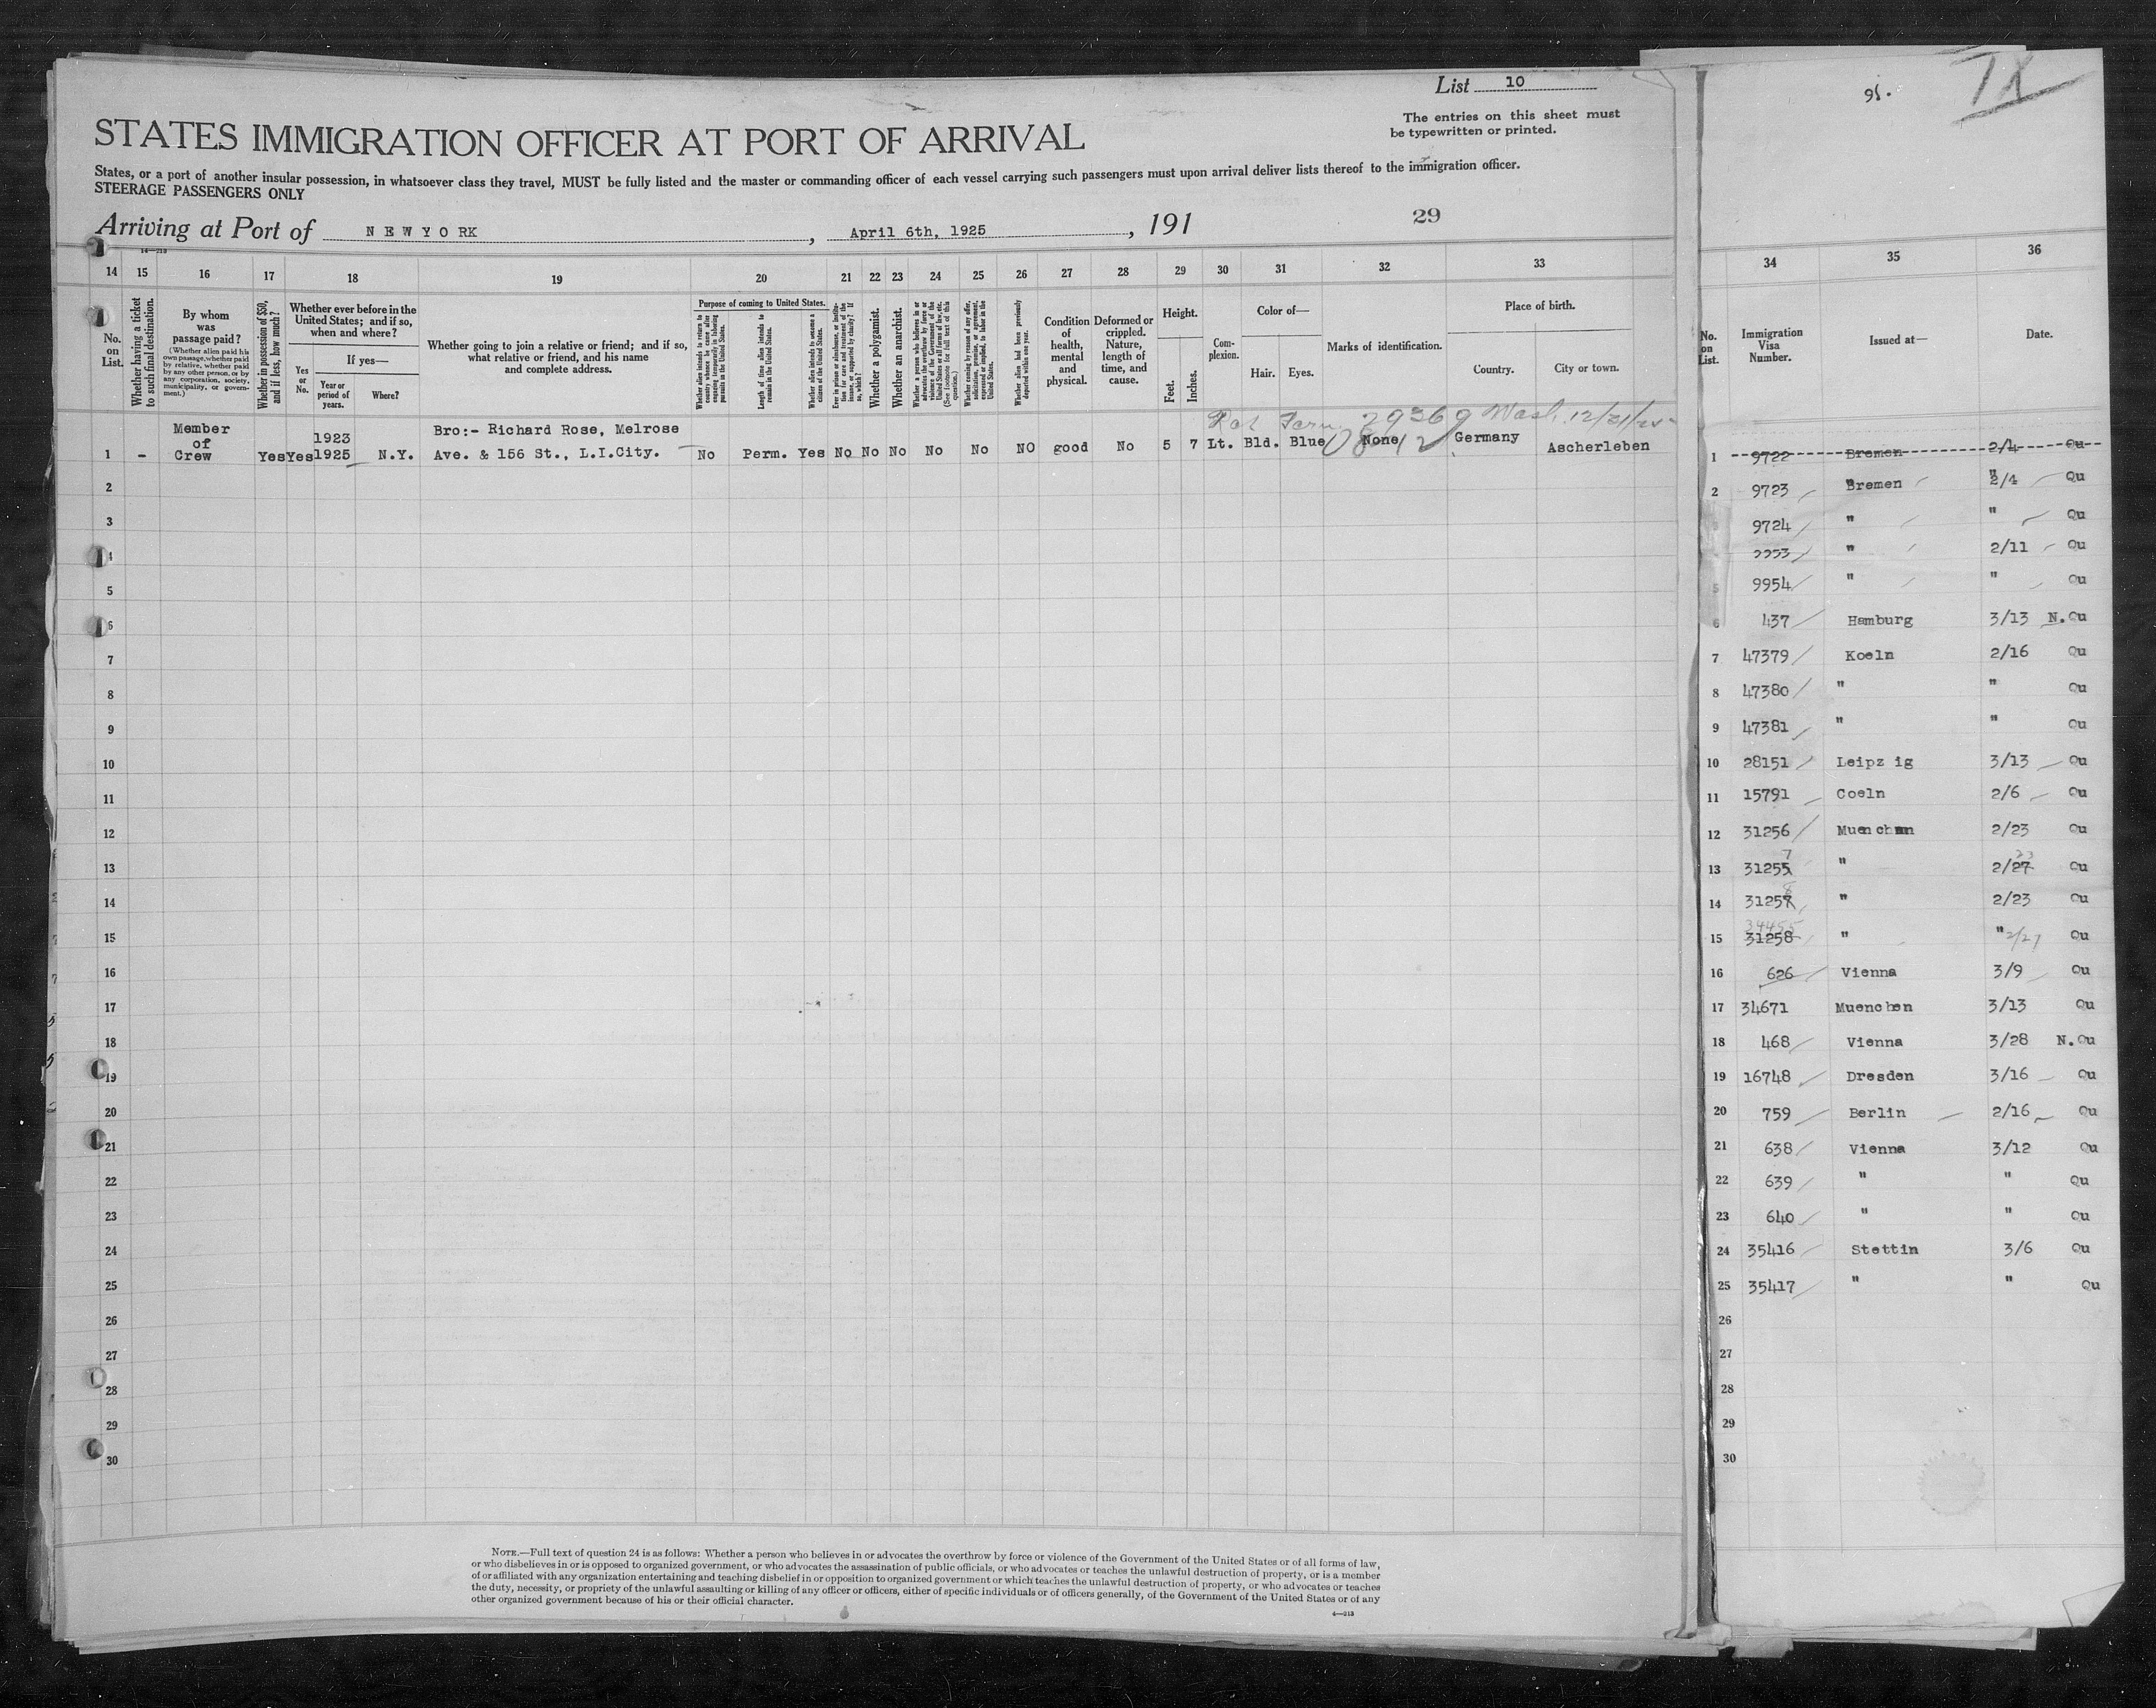 List 10
The entries on this sheet must
be typewritten or printed.
STATES IMMIGRATION OFFICER AT PORT OF ARRIVAL
States, or a port of another insular possession, in whatsoever class they travel, MUST be fully listed and the master or commanding officer of each vessel carrying such passengers must upon arrival deliver lists thereof to the immigration officer.
STEERAGE PASSENGERS ONLY
Arriving at Port of N E W Y O RK , April 6th, 1925 , 191
29
14—213
14 15 16 17 18 19 20 21 22 23 24 25 26 27 28 29 30 31 32 33
No. on List.
Whether having a ticket to such final destination.
By whom was passage paid?
(Whether alien paid his own passage, whether paid by relative, whether paid by any other person, or by any corporation, society, municipality, or government.)
Whether in possession of $50, and if less, how much?
Whether ever before in the United States; and if so, when and where?
Yes or No.
If yes—
Year or period of years.
Where?
Whether going to join a relative or friend; and if so, what relative or friend, and his name and complete address.
Purpose of coming to United States.
Whether alien intends to return to country whence he came after engaging temporarily in laboring pursuits in the United States.
Length of time alien intends to remain in the United States.
Whether alien intends to become a citizen of the United States.
Ever in prison or almshouse, or institution for care and treatment of the insane, or supported by charity? If so, which?
Whether a polygamist.
Whether an anarchist.
Whether a person who believes in or advocates the overthrow by force or violence of the Government of the United States or all forms of law, etc. (See footnote for full text of this question.)
Whether coming by reason of any offer, solicitation, promise, or agreement, expressed or implied, to labor in the United States.
Whether alien had been previously deported within one year.
Condition of health, mental and physical.
Deformed or crippled. Nature, length of time, and cause.
Height.
Feet.
Inches.
Complexion.
Color of—
Hair. Eyes.
Marks of identification.
Place of birth.
Country. City or town.
29369 Wash. 12/31/25
1 - Member of Crew Yes Yes 1923 1925 N.Y. Bro:- Richard Rose, Melrose Ave. & 156 St., L.I.City. No Perm. Yes No No No No No NO good No 5 7 Lt. Bld. Blue None Germany Ascherleben
2
3
4
5
6
7
8
9
10
11
12
13
14
15
16
17
18
19
20
21
22
23
24
25
26
27
28
29
30
NOTE.—Full text of question 24 is as follows: Whether a person who believes in or advocates the overthrow by force or violence of the Government of the United States or of all forms of law,
or who disbelieves in or is opposed to organized government, or who advocates the assassination of public officials, or who advocates or teaches the unlawful destruction of property, or is a member
of or affiliated with any organization entertaining and teaching disbelief in or opposition to organized government or which teaches the unlawful destruction of property, or who advocates or teaches
the duty, necessity, or propriety of the unlawful assaulting or killing of any officer or officers, either of specific individuals or of officers generally, of the Government of the United States or of any
other organized government because of his or their official character.
95.
34 35 36
No. on List.
Immigration Visa Number.
Issued at—
Date.
1 9722 Bremen 2/4 Qu
2 9723 Bremen 2/4 Qu
9724 " " Qu
" 2/11 Qu
5 9954 " " Qu
6 437 Hamburg 3/13 N.Qu
7 47379 Koeln 2/16 Qu
8 47380 " " Qu
9 47381 " " Qu
10 28151 Leipz ig 3/13 Qu
11 15791 Coeln 2/6 Qu
12 31256 Muenchen 2/23 Qu
13 31255 7 " 2/27 23 Qu
14 31257 8 " 2/23 Qu
34455
15 31258 " " 2/27 Qu
16 626 Vienna 3/9 Qu
17 34671 Muenchen 3/13 Qu
18 468 Vienna 3/28 N.Qu
19 16748 Dresden 3/16 Qu
20 759 Berlin 2/16 Qu
21 638 Vienna 3/12 Qu
22 639 " " Qu
23 640 " " Qu
24 35416 Stettin 3/6 Qu
25 35417 " " Qu
26
27
28
29
30